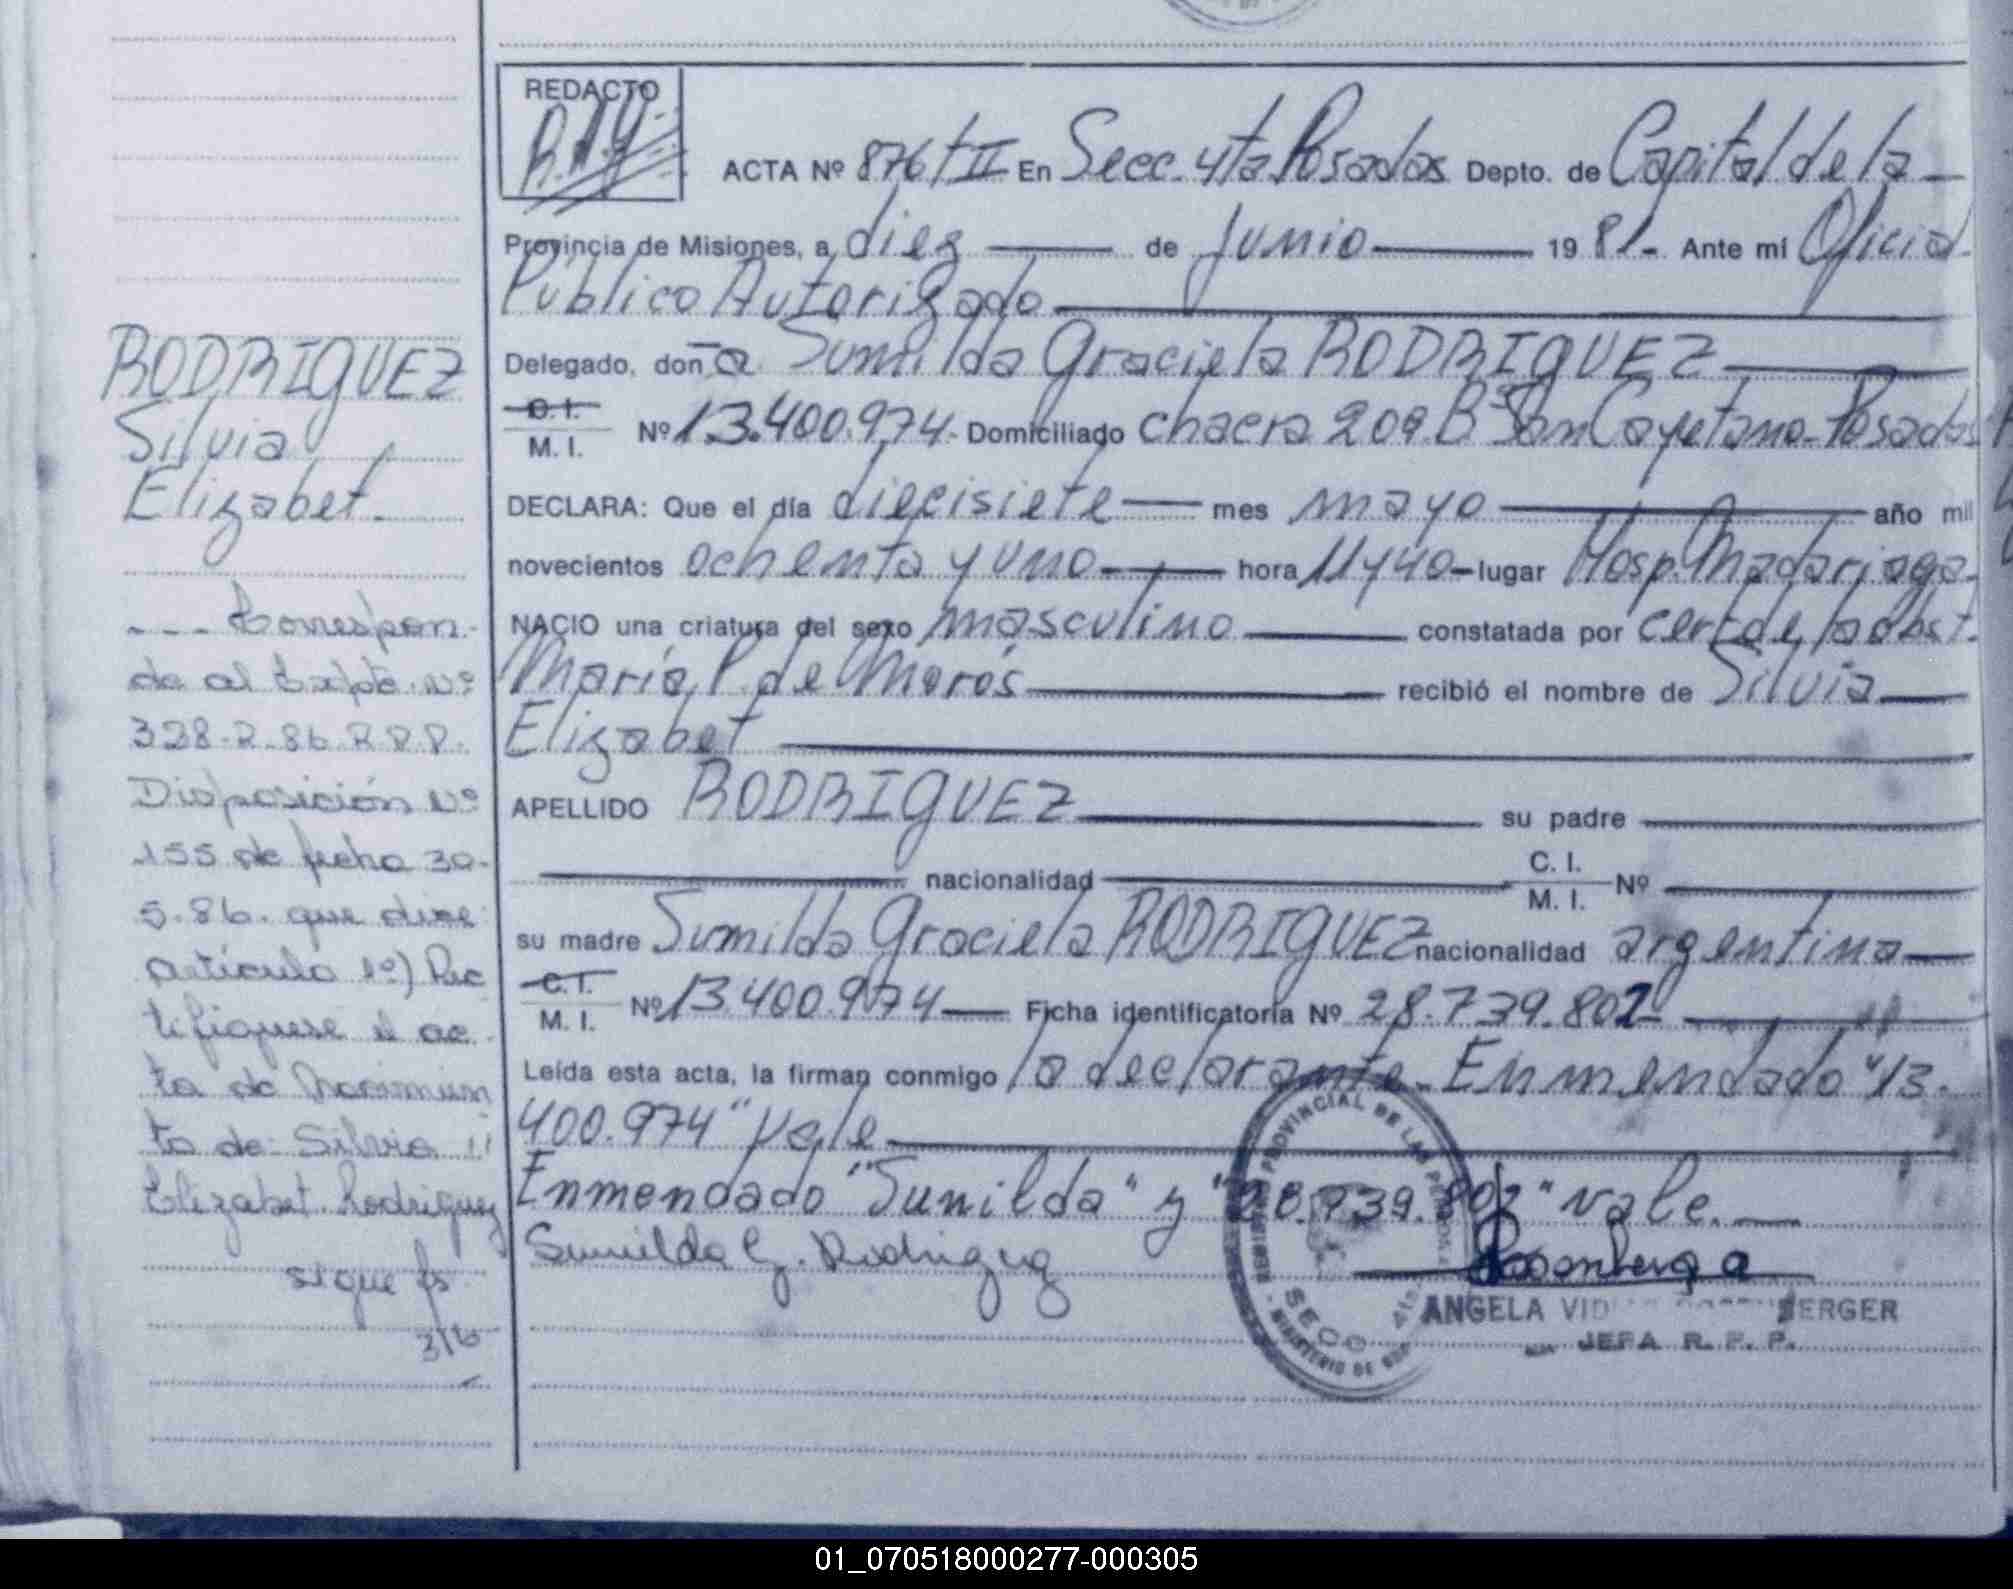 REDACTO
ACTA Nº 876 t II En Secc. 4ta Posadas Depto. de Capital de la
Provincia de Misiones, a diez de Junio 1981.- Ante mí Oficial
Público Autorizado
Delegado, don-a Sumilda Graciela RODRIGUEZ
C. I.
M. I. Nº 13.400.974.- Domiciliado chacra 209. Bº San Cayetano- Posadas
DECLARA: Que el día diecisiete mes mayo año mil
novecientos ochenta y uno hora 11 y 40 lugar Hosp. Madariaga
NACIO una criatura del sexo masculino constatada por cert de la obst.
María P. de Morós recibió el nombre de Silvia
Elizabet
APELLIDO RODRIGUEZ su padre
nacionalidad C. I. M. I. Nº
su madre Sumilda Graciela RODRIGUEZ nacionalidad argentina
C. I.
M. I. Nº 13.400.974 Ficha identificatoria Nº 28.739.802
Leída esta acta, la firman conmigo la declarante.- Enmendado "13.
400.974" Vale
Enmendado "Sunilda" y "28.739.802" vale.
Sumilda G. Rodriguez
ANGELA VID BERGER
JEFA R. P. P.
REGISTRO PROVINCIAL DE LAS PERSONAS
SECC 4ta.
MINISTERIO DE GOB
RODRIGUEZ
Silvia
Elizabet.
--- Correspon-
de al Expte. Nº
328-R-86 R.P.P.
Disposición Nº
155 de fecha 30-
5.86. que dice:
artículo 1º) Rec
tifíquese el ac-
ta de Nacimien
to de: Silvia
Elizabet Rodriguez
sigue fs
316
01_070518000277-000305